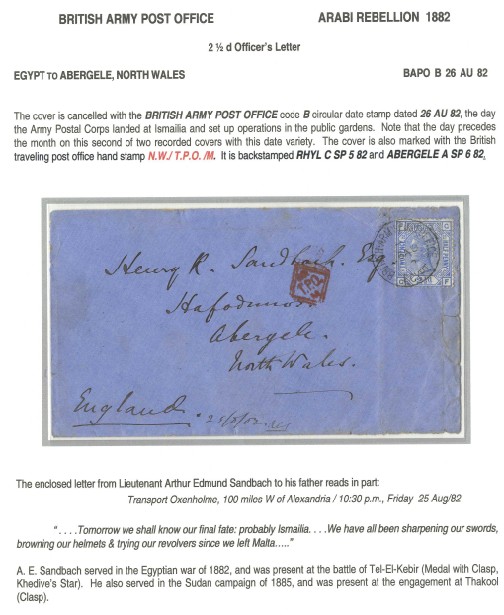 BRITISH ARMY POST OFFICE ARABI REBELLION 1882
2 ½ d Officer's Letter
EGYPT TO ABERGELE, NORTH WALES BAPO B 26 AU 82
The cover is cancelled with the BRITISH ARMY POST OFFICE code B circular date stamp dated 26 AU 82, the day
the Army Postal Corps landed at Ismailia and set up operations in the public gardens. Note that the day precedes
the month on this second of two recorded covers with this date variety. The cover is also marked with the British
traveling post office hand stamp N.W./ T.P.O. /M. It is backstamped RHYL C SP 5 82 and ABERGELE A SP 6 82.
Henry R. Sandbach. Esq
T.P.O.
Hafodunos
Abergele.
North Wales.
England.
The enclosed letter from Lieutenant Arthur Edmund Sandbach to his father reads in part:
Transport Oxenholme, 100 miles W of Alexandria / 10:30 p.m., Friday 25 Aug/82
". . . .Tomorrow we shall know our final fate: probably Ismailia. . . .We have all been sharpening our swords,
browning our helmets & trying our revolvers since we left Malta....."
A. E. Sandbach served in the Egyptian war of 1882, and was present at the battle of Tel-El-Kebir (Medal with Clasp,
Khedive's Star). He also served in the Sudan campaign of 1885, and was present at the engagement at Thakool
(Clasp).